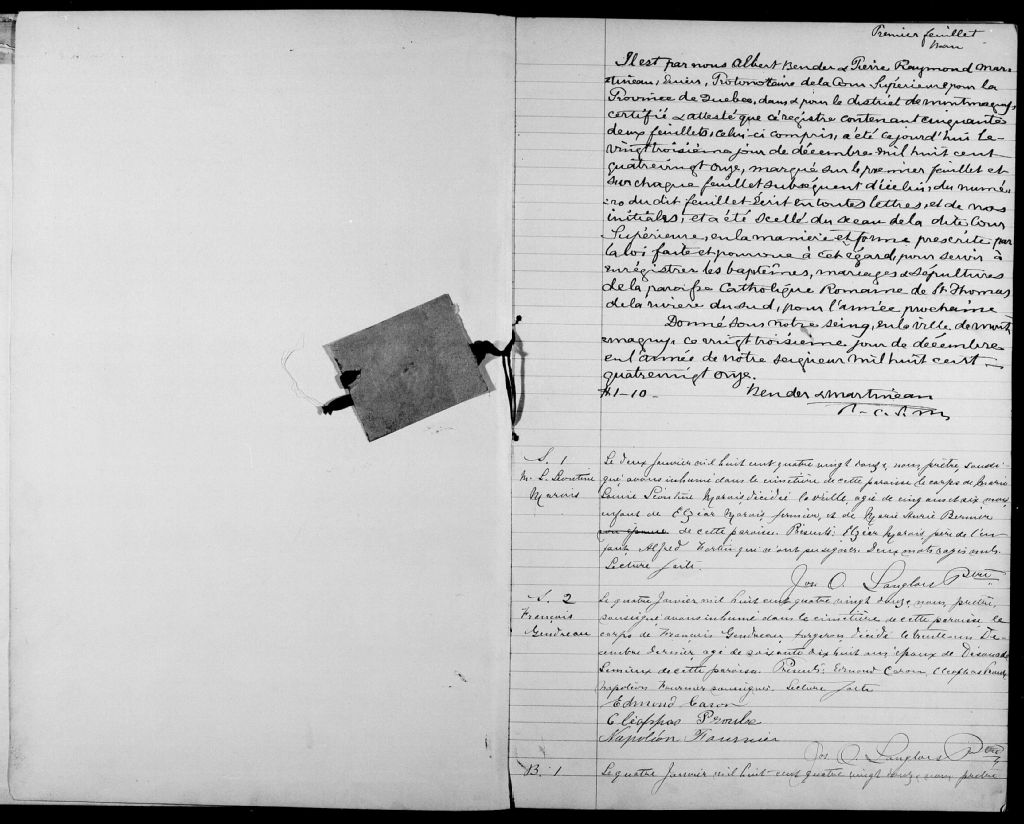 Premier feuillet
Il est par nous Albert Bender & Pierre Raymond Mar-
tineau, Ecuiers, Protonotaire de la Cour Supérieure pour la
Province de Quebec, dans & pour le district de Montmagny,
certifié & attesté que ce régistre contenant cinquante
deux feuillets, celui-ci compris, a été cejourd'hui le
vingt troisième jour de décembre mil huit cent
quatrevingt onze, marqué sur le premier feuillet et
sur chaque feuillet subséquent d'icelui, du numé-
ro du dit feuillet écrit en toutes lettres, et de nos
initiales, et a été scellé du sceau de la dite Cour
Supérieure, en la manière et forme prescrite par
la loi faite et pourvue à cet égard, pour servir à
enrégistrer les baptêmes, mariages & sépultures
de la paroisse Catholique Romaine de St. Thomas
de la rivière du Sud, pour l'année prochaine
Donné sous notre seing, en la ville de Mont
magny, ce vingt troisième jour de décembre
en l'année de notre seigneur mil huit cent
quatrevingt onze.
#1-10- Bender & Martineau
P. C. S. M.
S. 1
M. L. Léontine
Marois
Le deux Janvier mil huit cent quatre vingt douze, nous prêtre, soussi-
gné avons inhumé dans le cimetière de cette paroisse le corps de Marie
Louise Léontine Marois décédée la veille, agée de cinq ans et six mois
enfant de Elzéar Marois fermier, et de Marie Bernier
son épouse de cette paroisse. Présents: Elzéar Marois, père de l'en-
fant, Alfred qui n'ont pu signer. Deux mots rayés nuls.
Lecture faite.
Jos. O. Langlois Ptre
S. 2
François
Gendreau
Le quatre Janvier mil huit cent quatre vingt douze, nous, prêtre,
soussigné avons inhumé dans le cimetière de cette paroisse le
corps de François Gendreau, forgeron décédé le trente un Dé-
cembre dernier agé de soixante dix huit ans époux de
Lemieux de cette paroisse. Présents: Edmond Caron, Cléophas Proulx,
Napoléon Fournier soussignés. Lecture faite
Edmond Caron
Cléophas Proulx
Napoléon Fournier
Jos. O. Langlois Ptre
B. 1
Le quatre Janvier mil huit-cent quatre vingt douze, nous prêtre